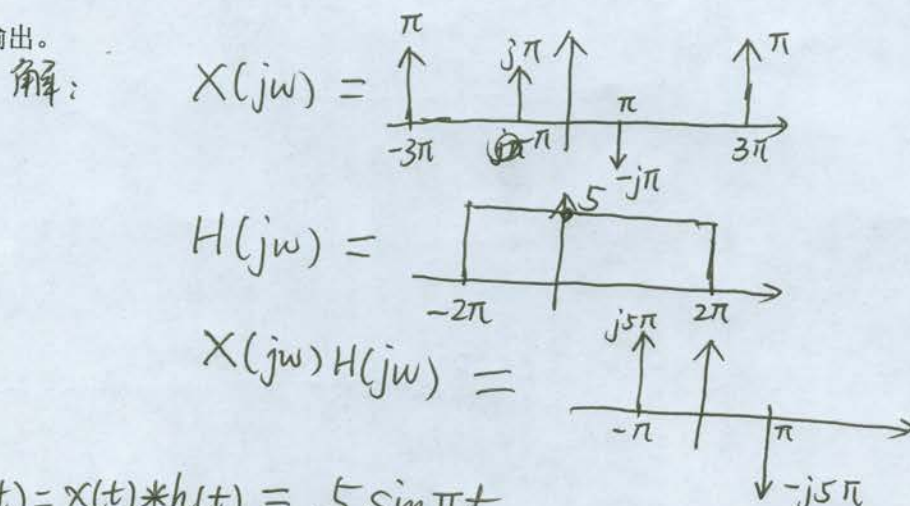 出。
解:
X(jw) =
π
jπ
π
π
-3π
-π
-jπ
3π
H(jw) =
5
-2π
2π
X(jw)H(jw) =
j5π
-π
π
-j5π
t) = x(t)*h(t) = 5 sin πt